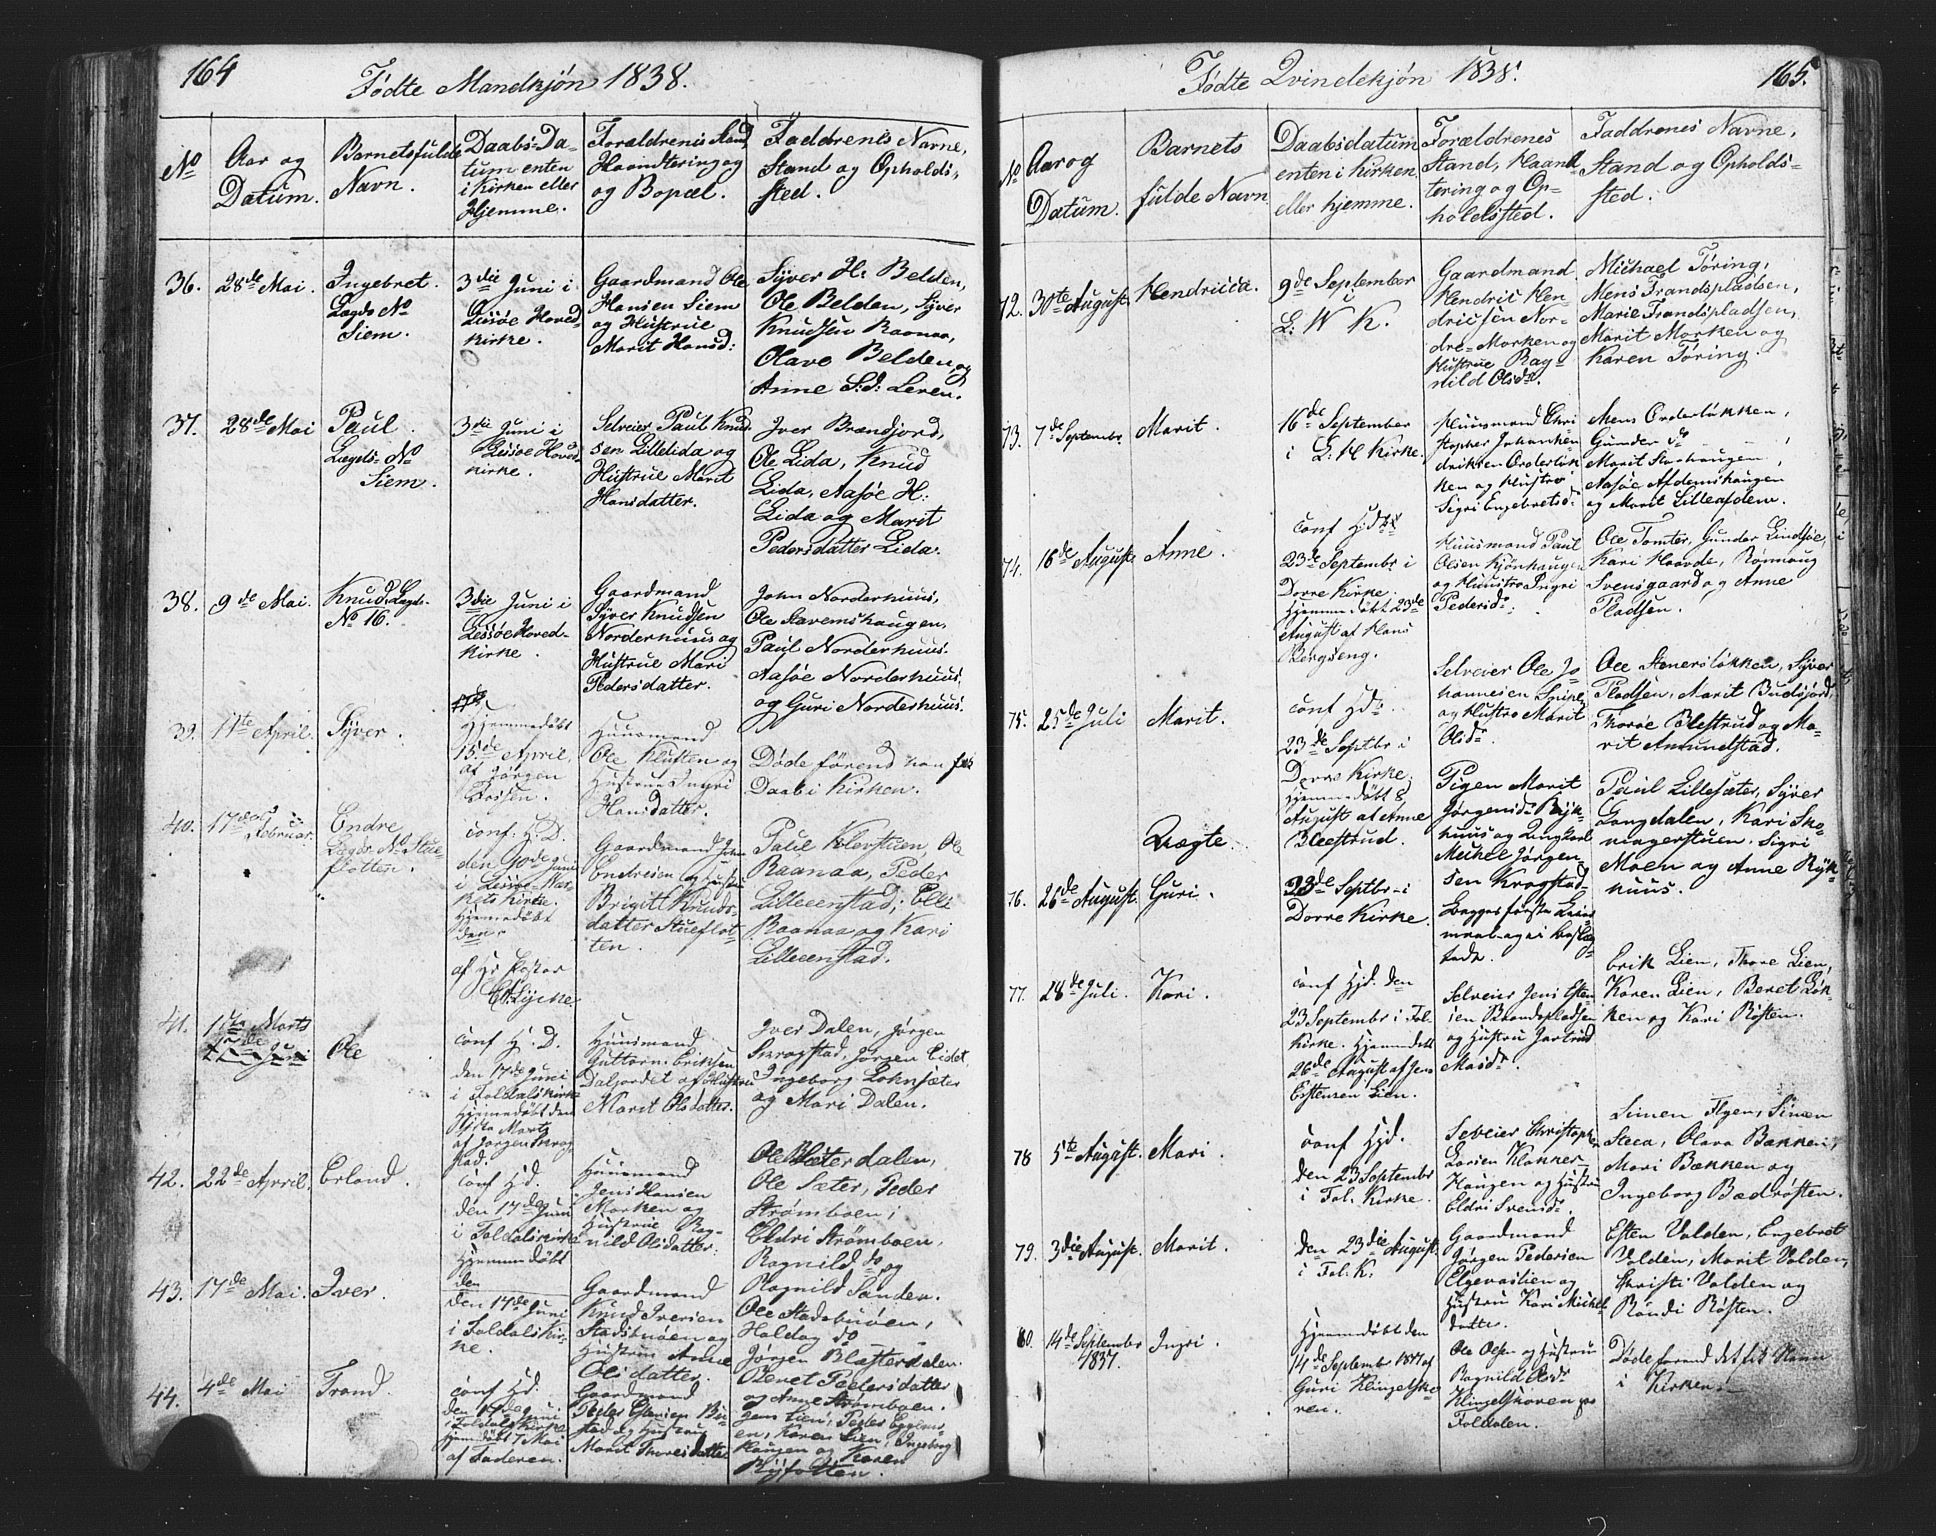 164
Fødte Mandkjøn 1838.
No
Aar og
Datum.
Barnets fulde
Navn.
Daabs-Da-
tum enten
i Kirken eller
Hjemme.
Forældrenes Stand
Haandtering og
og Bopæl.
Faddrenes Navne,
Stand og Opholds-
sted.
36.
28de Mai.
Ingebret.
Lægds No
Siem.
3die Juni i
Lessøe Hoved-
kirke.
Gaardmand Ole
Hansen Siem
og Hustrue
Marit Hansd:
Syver H: Belden,
Ole Belden, Syver
Knudsen Raanaa,
Olave Belden og
Anne S:d: Leren.
37.
28de Mai
Paul.
Lægds- No
Siem.
3die Juni i
Lessøe Hoved-
kirke.
Selveier Paul Knud
sen Lillelida og
Hustrue Marit
Hansdatter.
Iver Brændjord,
Ole Lida, Knud
Lida, Aasøe H:
Lida og Marit
Pedersdatter Lida.
38.
9de Mai.
Knud. Lægds-
No 16.
3die Juni i
Lessøe Hoved-
kirke.
Gaardmand
Syver Knudsen
Norderhuus og
Hustrue Mari
Pedersdatter.
John Norderhuus,
Ole Stavemshaugen,
Paul Norderhuus.
Aasøe Norderhuus.
og Guri Norderhuus.
39.
11te April.
Syver.
Hjemmedøbt
15de April
af Jørgen
Huusmand
Ole Kluften og
Hustrue Ingri
Hansdatter.
Døde førend han fik
Daab i Kirken.
40.
17de
Februar.
Endre
Lægds No Stue-
flotten.
conf: H. D.
i Lessøe-Vær-
kets Kirke.
Hjemmedøbt
den
af Hr Pastor
Gaardmand
Endresen og Hustru
Brigitt Knuds-
datter Stueflot-
ten.
Paul Klevstuen, Ole
Raanaa, Peder
Lilleenstad; Elli
Raanaa og Kari
Lilleenstad.
41.
1ste Marts
Ole
conf H. D.
den 17de Juni
i Foldalskirke
Hjemmedøbt den
Marts
af Jørgen Krog
stad.
Huusmand
Guttorm Eriksen
Daljordet og Hustru
Marit Olsdatter.
Iver Dalen, Jørgen
Krogstad, Jørgen Eidet,
Ingeborg Lohnsæter
og Mari Dalen.
42.
22de April.
Erland.
conf Hd.
den 17de Juni
i Foldalskirke
Hjemmedøbt
den
Huusmand
Jens Hansen
Morken og
Hustrue Rag-
nild Olsdatter.
Ole Slæterdalen,
Ole Sæter, Peder
Strømboen;
Eldri Strømboen,
Ragnild do og
Ragnild Sanden.
43.
17de Mai.
Iver.
den 17de Juni
i Foldals Kir-
ke.
Gaardmand
Knud Iversen
Stadsbuøen og
Hustrue Anne
Olsdatter.
Ole Stadsbuøen,
Haldog do
Jørgen Blæsterdalen.
Beret Pedersdatter
og Anne Strømboen.
44.
4de Mai
Trond.
conf Hd.
den 17de Juni
i Foldals Kirke
Hjemdøbt 7 Mai
af Faderen.
Gaardmand
Peder Estensen Bu-
stad og Hustrue
Marit Thoresdatter
Jens Lien, Peder
en, Karen Lien, Ingeborg
Haugen og Karen
165.
Fødte Qvindekjøn 1838.
No
Aar og
Datum.
Barnets
fulde Navn
Daabsdatum
enten i kirken
eller hjemme.
Forældrenes
Stand, Haand-
tering og Op-
holdssted.
Faddrenes Navne,
Stand og Opholds-
sted.
72.
30te August.
Hendricca.
9de September
i
L: W K.
Gaardmand
Hendric Hen-
dricsen Nor-
dre-Morken og
Hustrue Rag-
nild Olsdr.
Michael Tøring,
Mens Frandspladsen,
Marie Frandspladsen,
Marit Morken og
Karen Tøring.
73.
7de Septembr.
Marit.
16de September
i L: H Kirke.
Huusmand Chri-
stopher Johan Hen-
driksen Orderløk-
ken og Hustro
Sigri Engebretsd:
Mens Orderløkken,
Gunder do
Marit Starhaugen,
Aasøe Afdemshaugen
og Marit Lilleafdem.
74.
16de August.
Anne.
conf Hjd.
23de Septembr i
Dovre Kirke.
Hjemmedøbt 23de
August af Hans
Bergseng.
Huusmand Paul
Olsen Kjønhaugen
og Huustro Ingri
Pedersdr.
Ole Tomter, Gunder Lindsøe,
Kari Haavde, Rønnaug
Svensgaard og Anne
Pladsen.
75.
25de Juli
Marit.
conf Hdr.
23de Septbr i
Dovre Kirke.
Hjemmedøbt 8
August af Anne
Bleestrud.
Selveier Ole Jo
hannesen
og Hustro Marit
Olsdr.
Ole Stenersløkken, Syver
Pladsen, Marit Budsjord,
Thorøe Blestrud og Ma-
rit Amundstad.
76.
26de August.
Uægte.
Guri.
23de Septbr- i
Dovre Kirke
Pigen Marit
Jørgensdr. Ryk-
huus og Ungkarl
Mikkel Jørgen-
sen Krogstad-
Begges første Leier-
maal-
Paul Lillesæter, Syver
Langdalen, Kari Sko-
vangerstuen, Sigri
Moen og Anne Ryk-
huus.
77.
28de Juli.
Kari.
conf Hjd. den
23 Septembr i Fol-
kirke. Hjemmedøbt
26de August af Jens
Estensen Lien.
Selveier Jens Esten-
sen Brandspladsen
og Hustru Jartrud
Masdr.
Erik Lien, Thore Lien,
Karen Lien, Beret Løk-
ken og Kari Røsten.
78
5te August.
Mari.
conf Hjd.
den 23 September
i Fol. Kirke.
Selveier Christopher
Larsen Klokker-
Haugen og Hustru
Eldri Svensdr.
Simen Flyen, Simen
Steca, Olava Bækken,
Mari Bækken og
Ingeborg Bædrøsten.
79.
3die August.
Marit.
den 23die August
i Fol. K.
Gaardmand
Jørgen Pedersen
Elgevasslien og
Hustru Kari Mickels
datter.
Esten Volden, Engebret
Volden, Marit Volden,
Christi Volden og
Randi Røsten.
80.
14de September
1837.
Ingri.
Hjemmedøbt den
14de September 1837 af
Guri Klingelsko-
ven.
Ole Olsen og Hustrue
Ragnild Olsdr
Klingelskoven paa
Foldalen.
Døde førend det fik Navn
i Kirken.